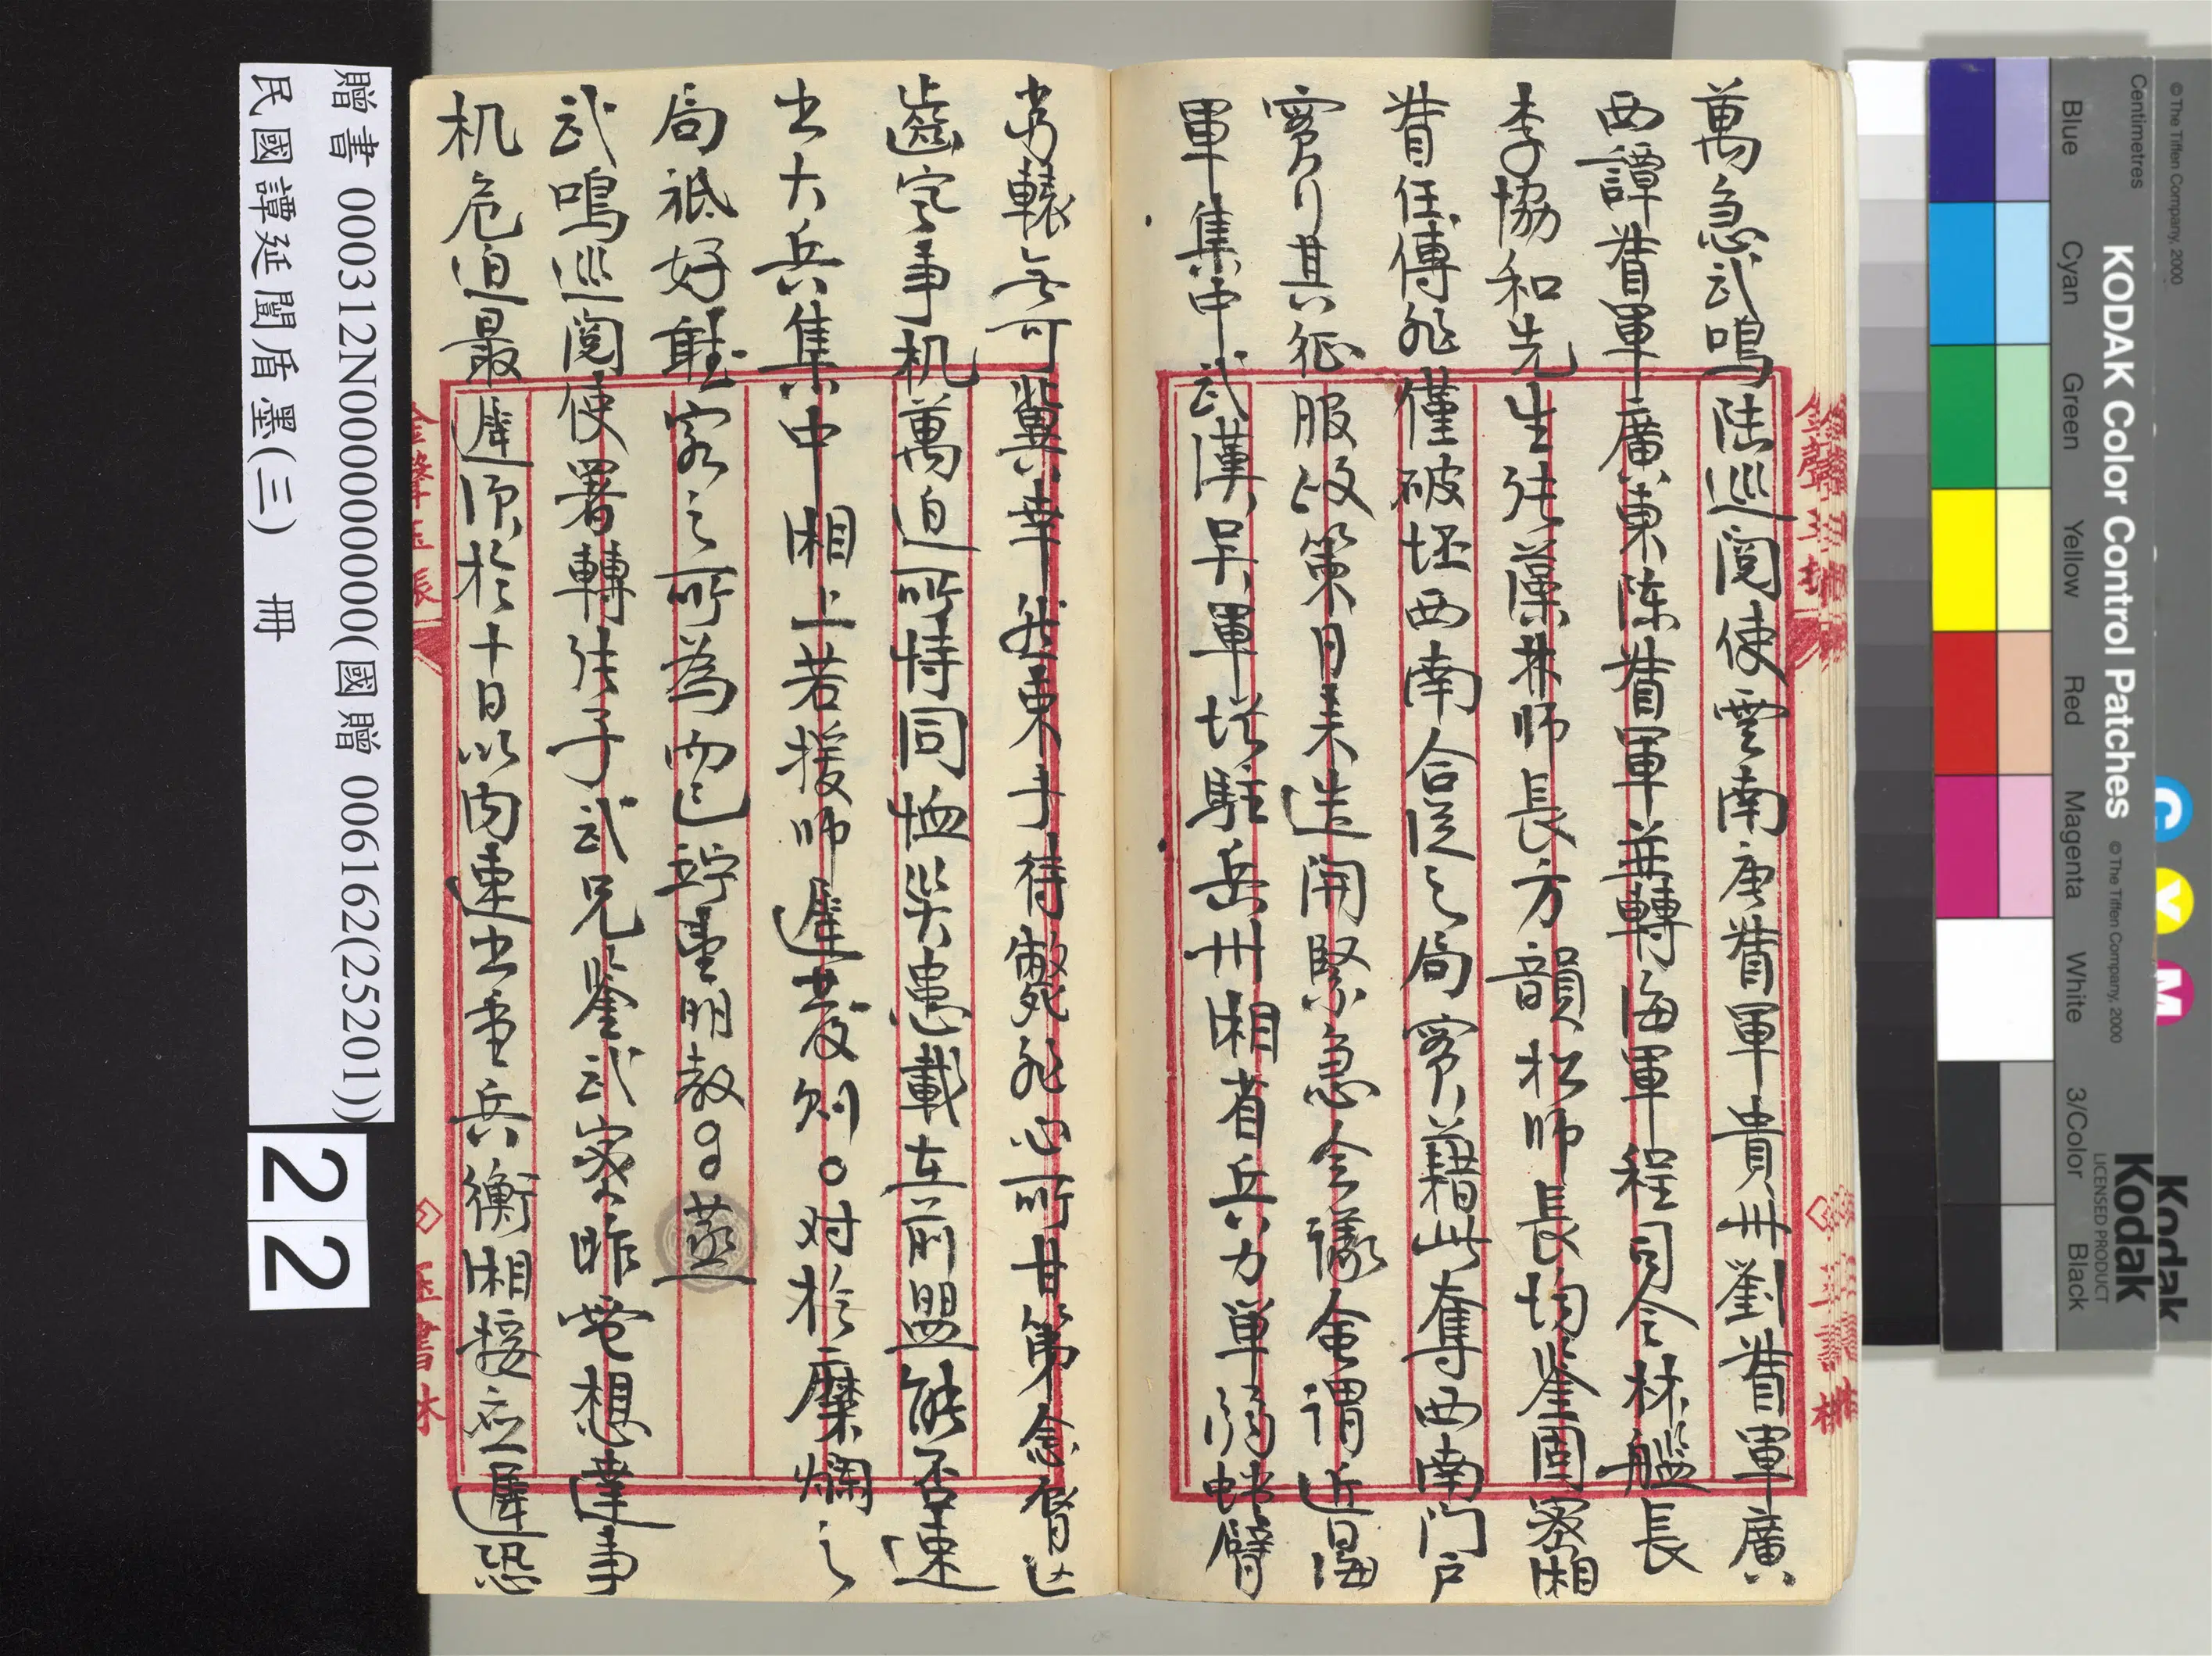 萬急武鳴陸巡閱使雲南唐督軍貴州劉督軍廣
西譚督軍廣東陳督軍并轉海軍程司令林艦長
李協和先生張藻林師長方韻松師長均鑒國密湘
督任傅非僅破壞西南合從之局實藉此奪西南门户
實行其征服政策日來迭開緊急會議僉謂近畿
軍集中武漢吳軍填駐岳州湘省兵力单弱螳臂
當轅無可冀幸我束手待斃死心所甘第念脣亡
齒寒事机萬迫所恃同恤災患載在前盟能否速
出大兵集中湘上若援師遲發則○对於糜爛之
局祗好聽客之所為而已竚盡明教○○蒸
武鳴巡閱使署轉张子武兄鉴武密昨電想達事
机危迫最遲须於十日以内速出重兵衡湘接应遲恐
贈書 000312N000000000000(國贈 006162(25201))
民國譚延闓盾墨(三) 冊
22
KODAK Color Control Patches
© The Tiffen Company, 2000
Centimetres
Blue Cyan Green Yellow Red Magenta White 3/Color Black
© The Tiffen Company, 2000
Kodak
LICENSED PRODUCT
Kodak
C Y M